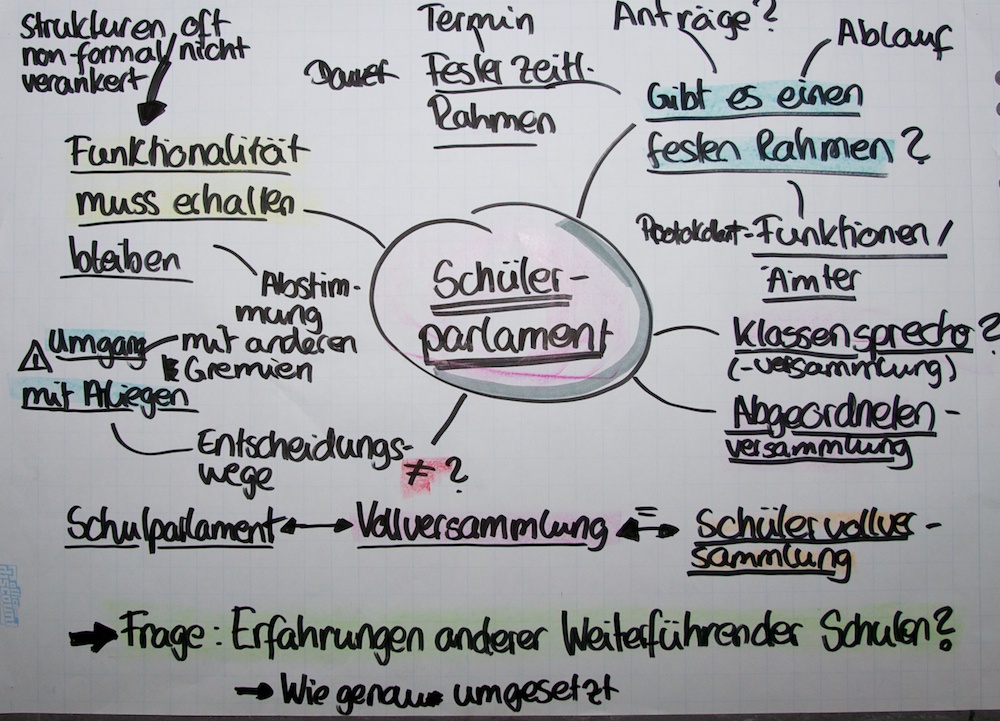 Strukturen oft
non-formal/nicht
verankert
Funktionalität
muss erhalten
bleiben
Abstim-
mung
mit anderen
Gremien
Umgang
mit Anliegen
Entscheidungs-
wege
Termin
Dauer
Fester zeitl.
Rahmen
Anträge?
Ablauf
Gibt es einen
festen Rahmen?
Funktionen/
Ämter
Schüler-
parlament
Klassensprecher?
(-versammlung)
Abgeordneten-
versammlung
≠ ?
Schulparlament ↔ Vollversammlung = ↔ Schülervollver-
sammlung
→ Frage: Erfahrungen anderer Weiterführender Schulen?
→ Wie genau umgesetzt